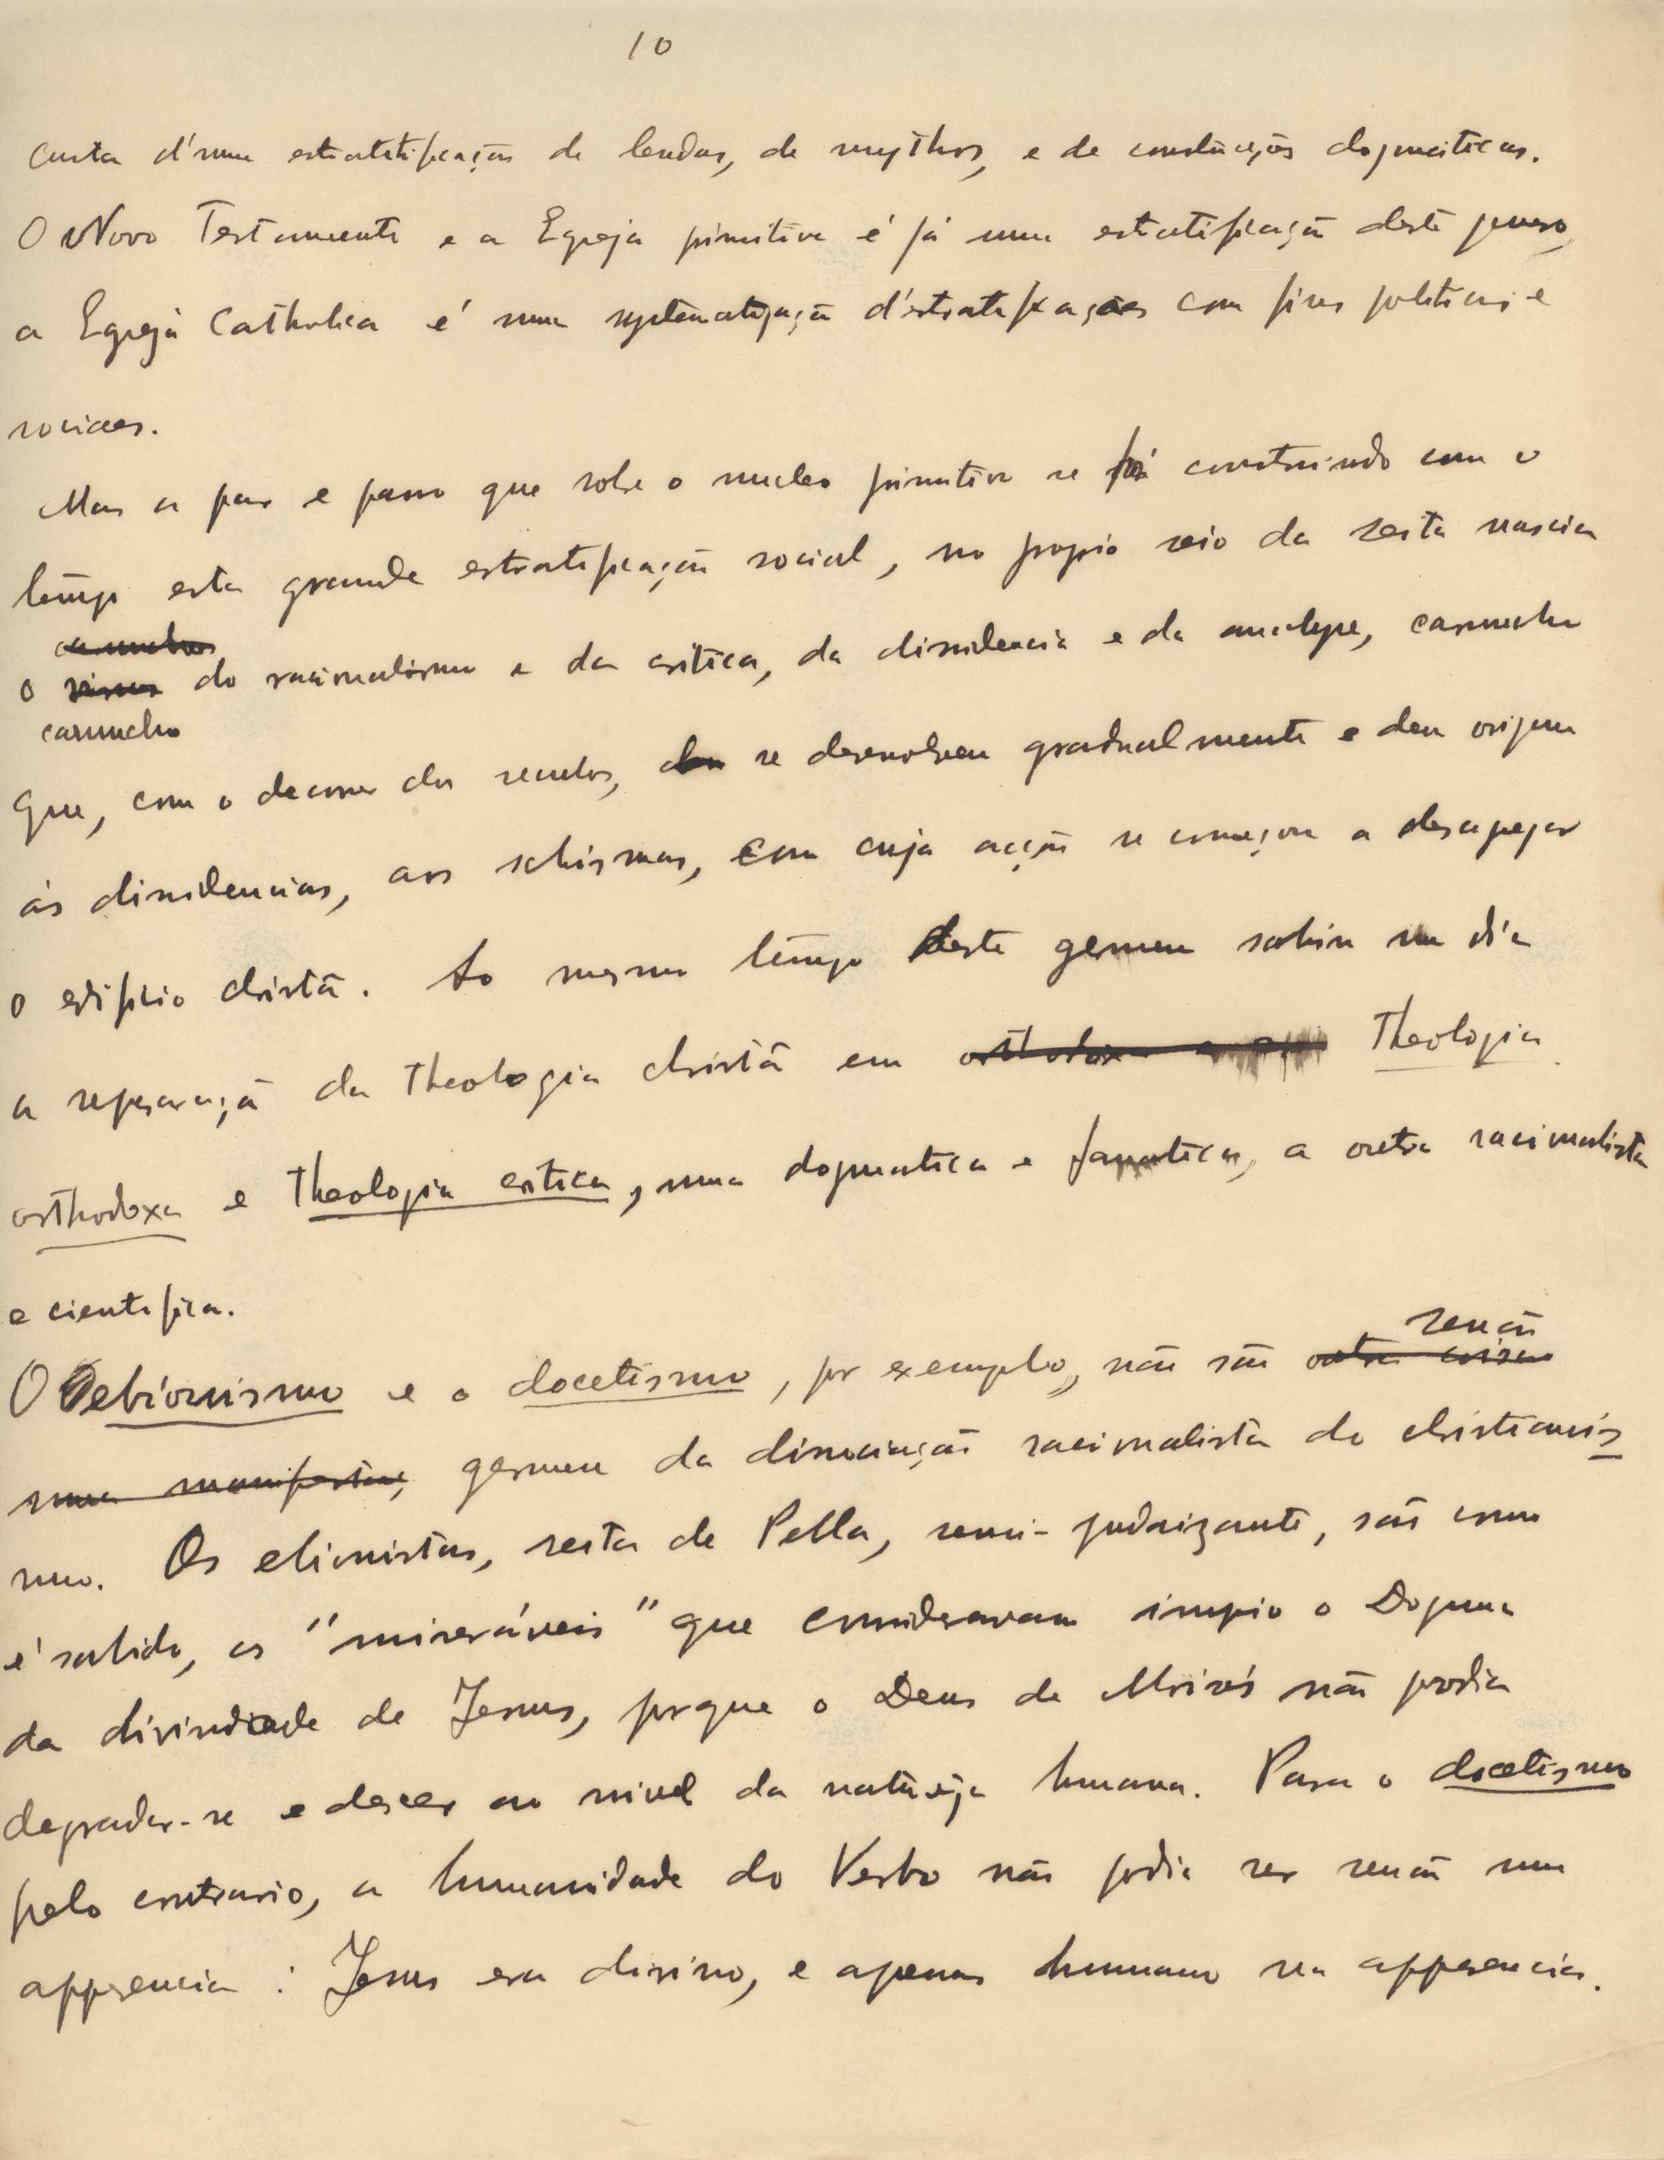 10
custa d'uma estratificação de lendas, de mythos, e de construções dogmaticas.
O Novo Testamento e a Egreja primitiva é já uma estratificação deste genero,
a Egreja Catholica é uma systematização d'estratificações com fins politicos e
sociaes.
Mas a par e passo que sobre o nucleo primitivo se foi construindo com o
tempo esta grande estratificação social, no proprio seio da seita nascia
o do racionalismo e da critica, da dissidencia e da analyse, caruncho
caruncho
que, com o decorrer dos seculos, se desenvolveu gradualmente e deu origem
ás dissidencias, aos schismas, com cuja acção se começou a desapegar
o edificio christão. Ao mesmo tempo deste germen sahiu um dia
a separação da theologia christã em Theologia
orthodoxa e theologia critica, uma dogmatica e fanatica, a outra racionalista
e cientifica.
O ebionismo e o docetismo, por exemplo, não são senão
germen da dissociação racionalista do christianis
mo. Os ebionistas, seita de Pella, semi-judaizante, são como
é sabido, os "miseráveis" que consideravam impio o Dogma
da divindade de Jesus, porque o Deus de Moisés não podia
degradar-se e descer ao nivel da natureza humana. Para o docetismo
pelo contrario, a humanidade do Verbo não podia ser senão uma
apparencia: Jesus era divino, e apenas humano na apparencia.